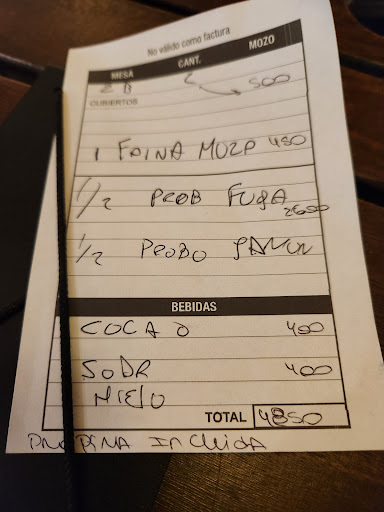 No válido como factura
MESA CANT. MOZO
2B 2 500
CUBIERTOS
1 FAINA MOZA 450
1/2 PROB FUGA 2600
1/2 PROBO JAMON
BEBIDAS
COCA 0 400
SODA 400
HIELO
TOTAL 4850
PROPINA INCLUIDA